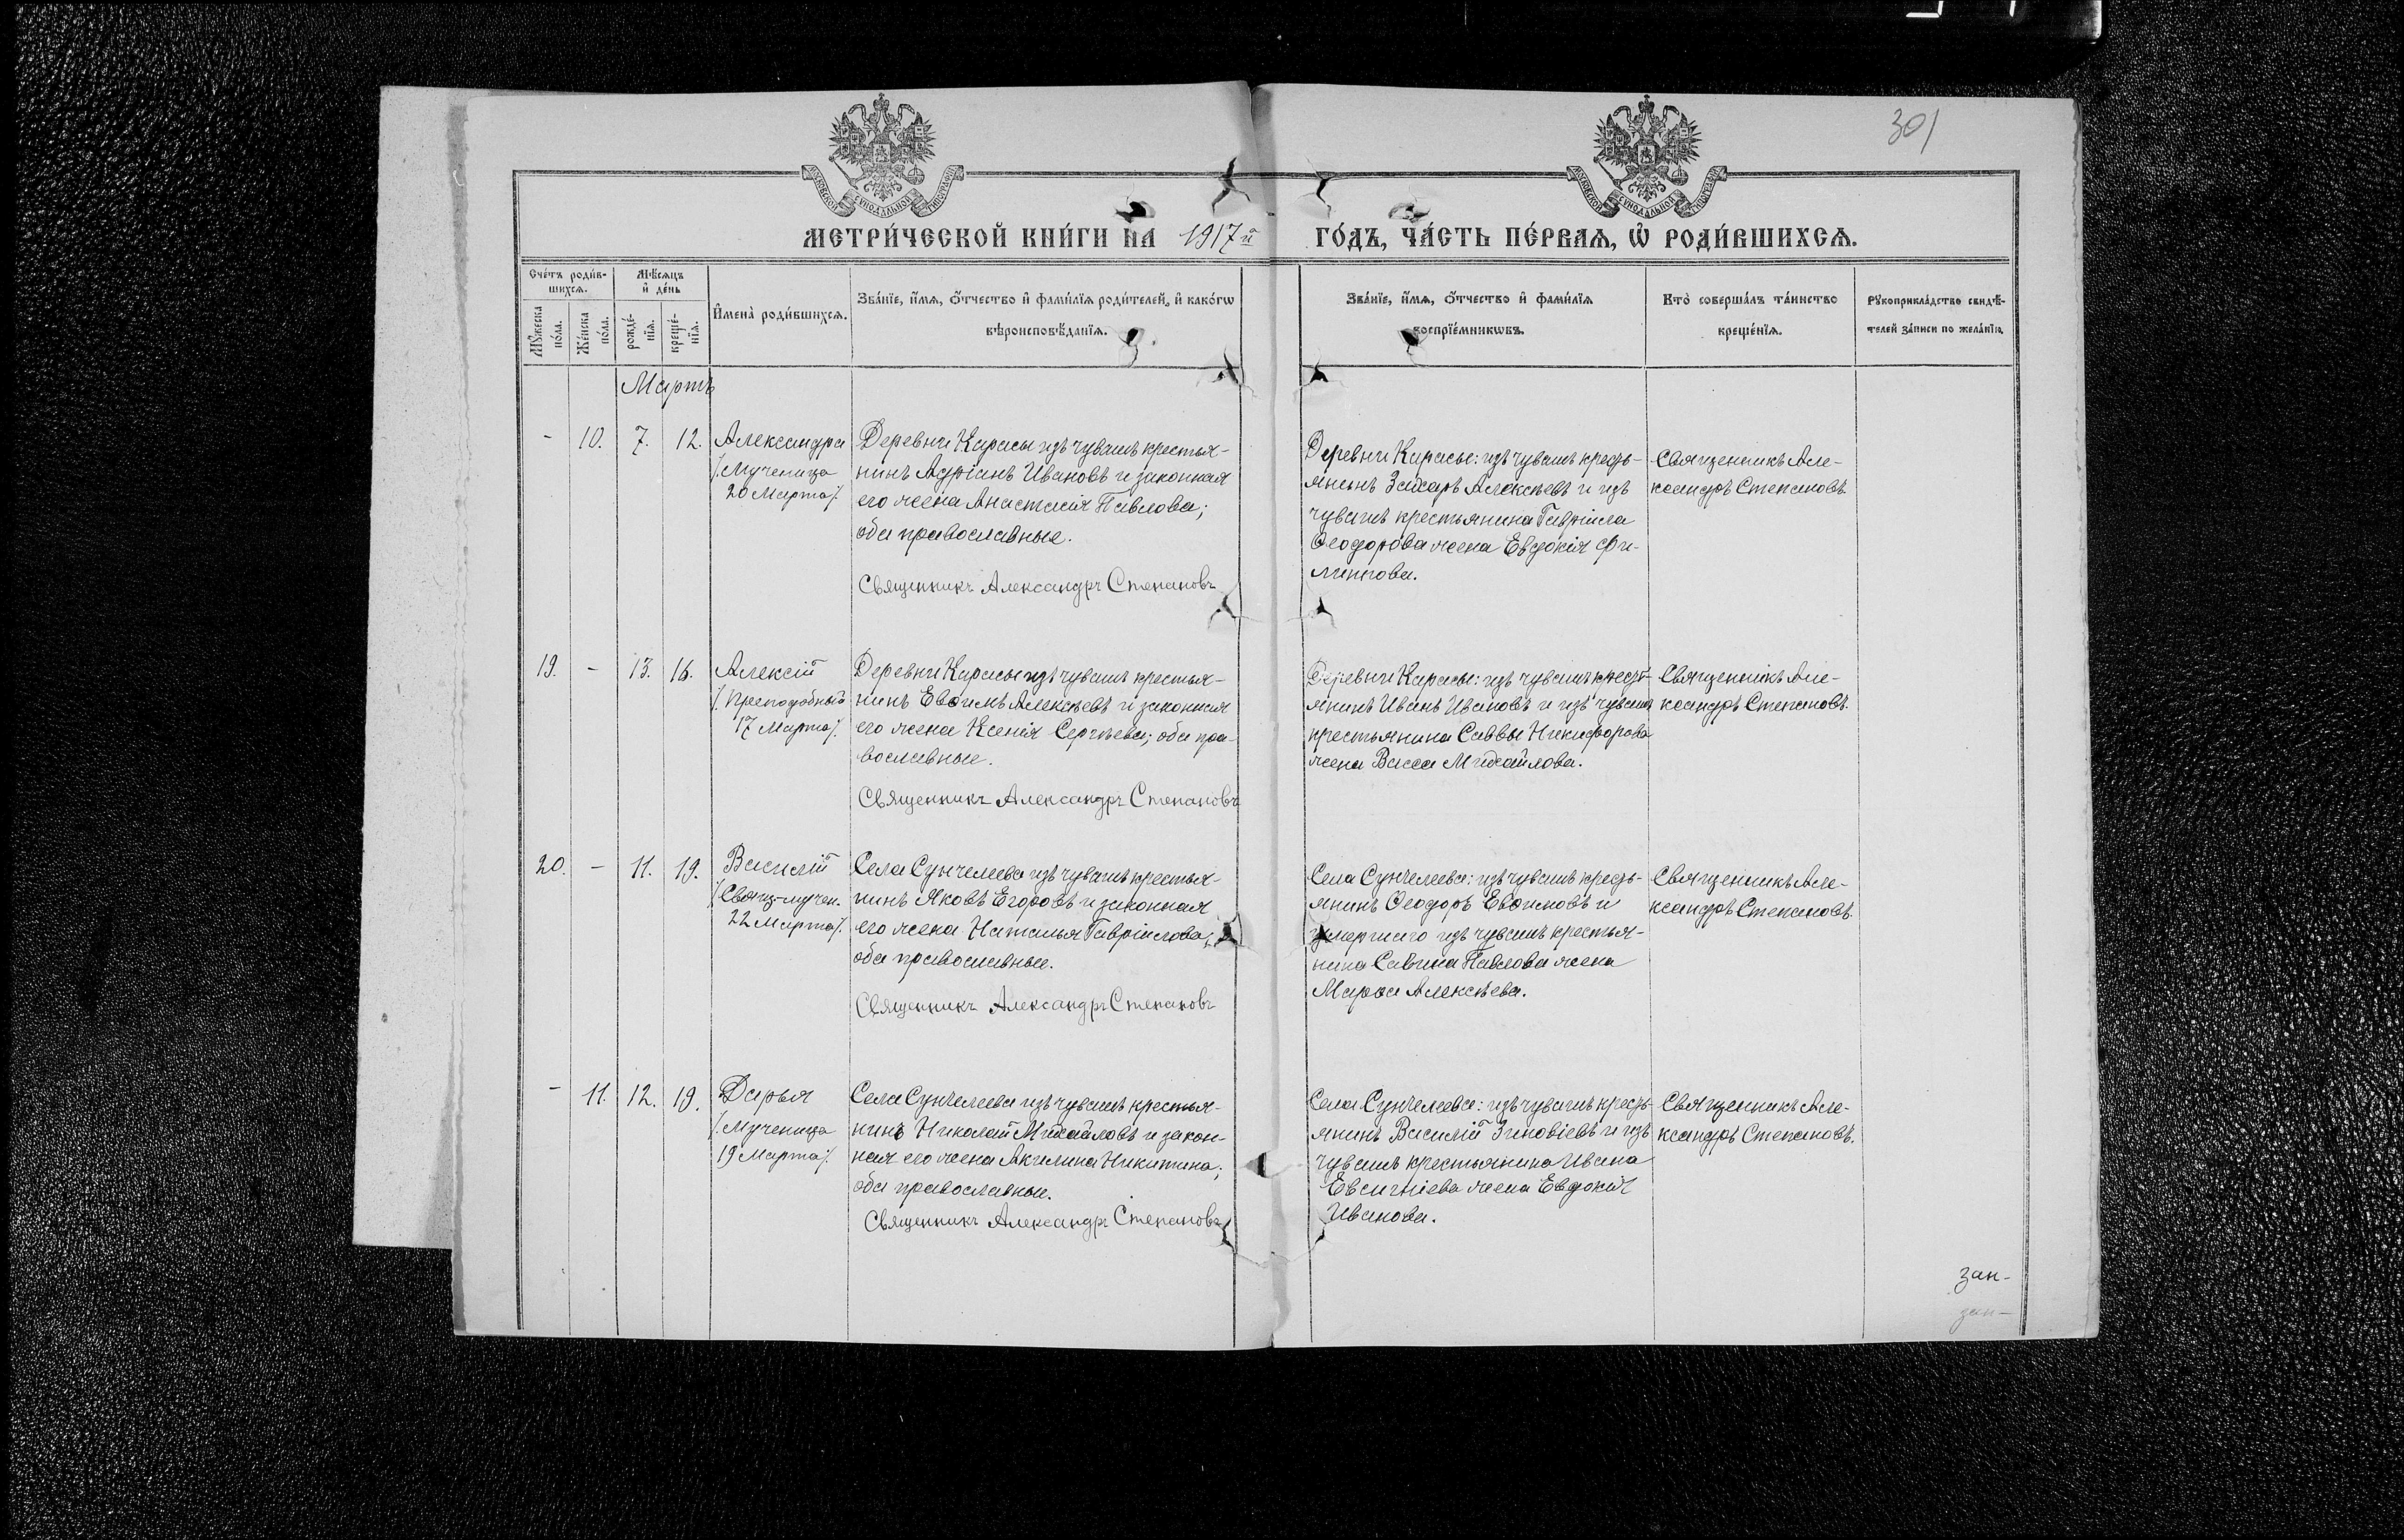 301
МОСКОВСКОЙ СѴНОДАЛЬНОЙ ТИПОГРАФІИ
МОСКОВСКОЙ СѴНОДАЛЬНОЙ ТИПОГРАФІИ
МЕТРИ́ЧЕСКОЙ КНИ́ГИ НА 1917й ГО́ДЪ, ЧА́СТЬ ПЕ́РВАЯ, Ѡ РОДИ́ВШИХСЯ.
Сче́тъ роди́в-
шихся.
Мѣ́сяцъ
и де́нь
Мꙋ́жеска
по́ла.
Же́нска
по́ла.
рожде́-
нїя.
креще́-
нїя.
Имена̀ роди́вшихся.
Зва́нїе, и́мя, о́тчество и фами́лїя роди́телей, и како́гѡ
вѣроисповѣ́данїя.
Зва́нїе, и́мя, о́тчество и фами́лїя
воспрїе́мникѡвъ.
Кто̀ соверша́лъ та́инство
креще́нїя.
Рꙋкоприкла́дство свидѣ́-
телей за́писи по жела́нїю.
Мартъ
- 10. 7. 12.
Александра
/. Мученица
20 Марта /.
Деревни Карасы изъ чувашъ крестья-
нинъ Адріанъ Ивановъ и законная
его жена Анастасія Павлова;
оба православные.
Священникъ Александръ Степановъ
Деревни Карасы: изъ чувашъ кресть-
янинъ Захаръ Алексѣевъ и изъ
чувашъ крестьянина Гавріила
Ѳеодорова жена Евдокія Фи-
липпова.
Священникъ Але-
ксандръ Степановъ.
19. - 13. 16.
Алексій
/. Преподобный
17 Марта /.
Деревни Карасы изъ чувашъ крестья-
нинъ Евѳимъ Алексѣевъ и законная
его жена Ксенія Сергѣева; оба пра-
вославные.
Священникъ Александръ Степановъ
Деревни Карасы: изъ чувашъ кресть-
янинъ Иванъ Ивановъ и изъ чувашъ
крестьянина Саввы Никифорова
жена Васса Михайлова.
Священникъ Але-
ксандръ Степановъ.
20. - 11. 19.
Василій
/. Свящ-мучен.
22 Марта /.
Села Сунчелеева изъ чувашъ крестья-
нинъ Яковъ Егоровъ и законная
его жена Наталья Гавріилова;
оба православные.
Священникъ Александръ Степановъ
Села Сунчелеева: изъ чувашъ кресть-
янинъ Ѳеодоръ Евѳимовъ и
умершаго изъ чувашъ крестья-
нина Савина Павлова жена
Марѳа Алексѣева.
Священникъ Але-
ксандръ Степановъ.
- 11. 12. 19.
Дарья
/. Мученица
19 Марта /.
Села Сунчелеева изъ чувашъ крестья-
нинъ Николай Михайловъ и закон-
ная его жена Акилина Никитина;
оба православные.
Священникъ Александръ Степановъ
Села Сунчелеева: изъ чувашъ кресть-
янинъ Василій Зиновіевъ и изъ
чувашъ крестьянина Ивана
Евсигніева жена Евдокія
Иванова.
Священникъ Але-
ксандръ Степановъ.
зап-
зап-